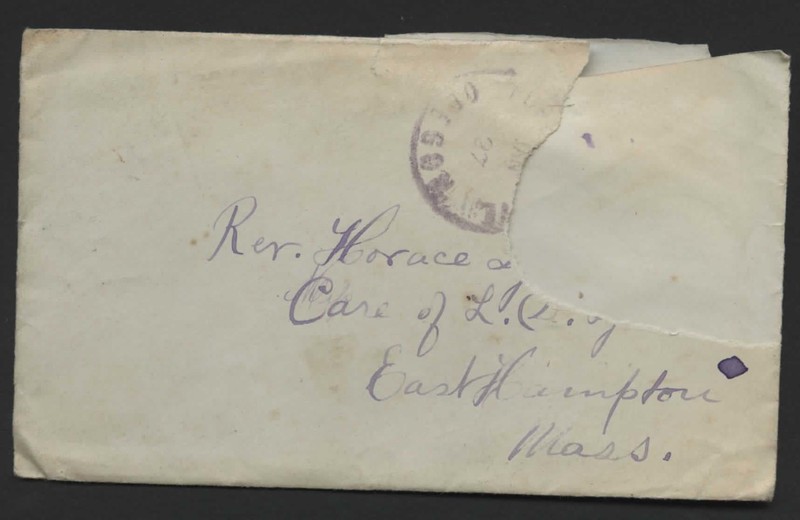 OREGON
27
Rev. Horace
Care of L.
East Hampton
Mass.